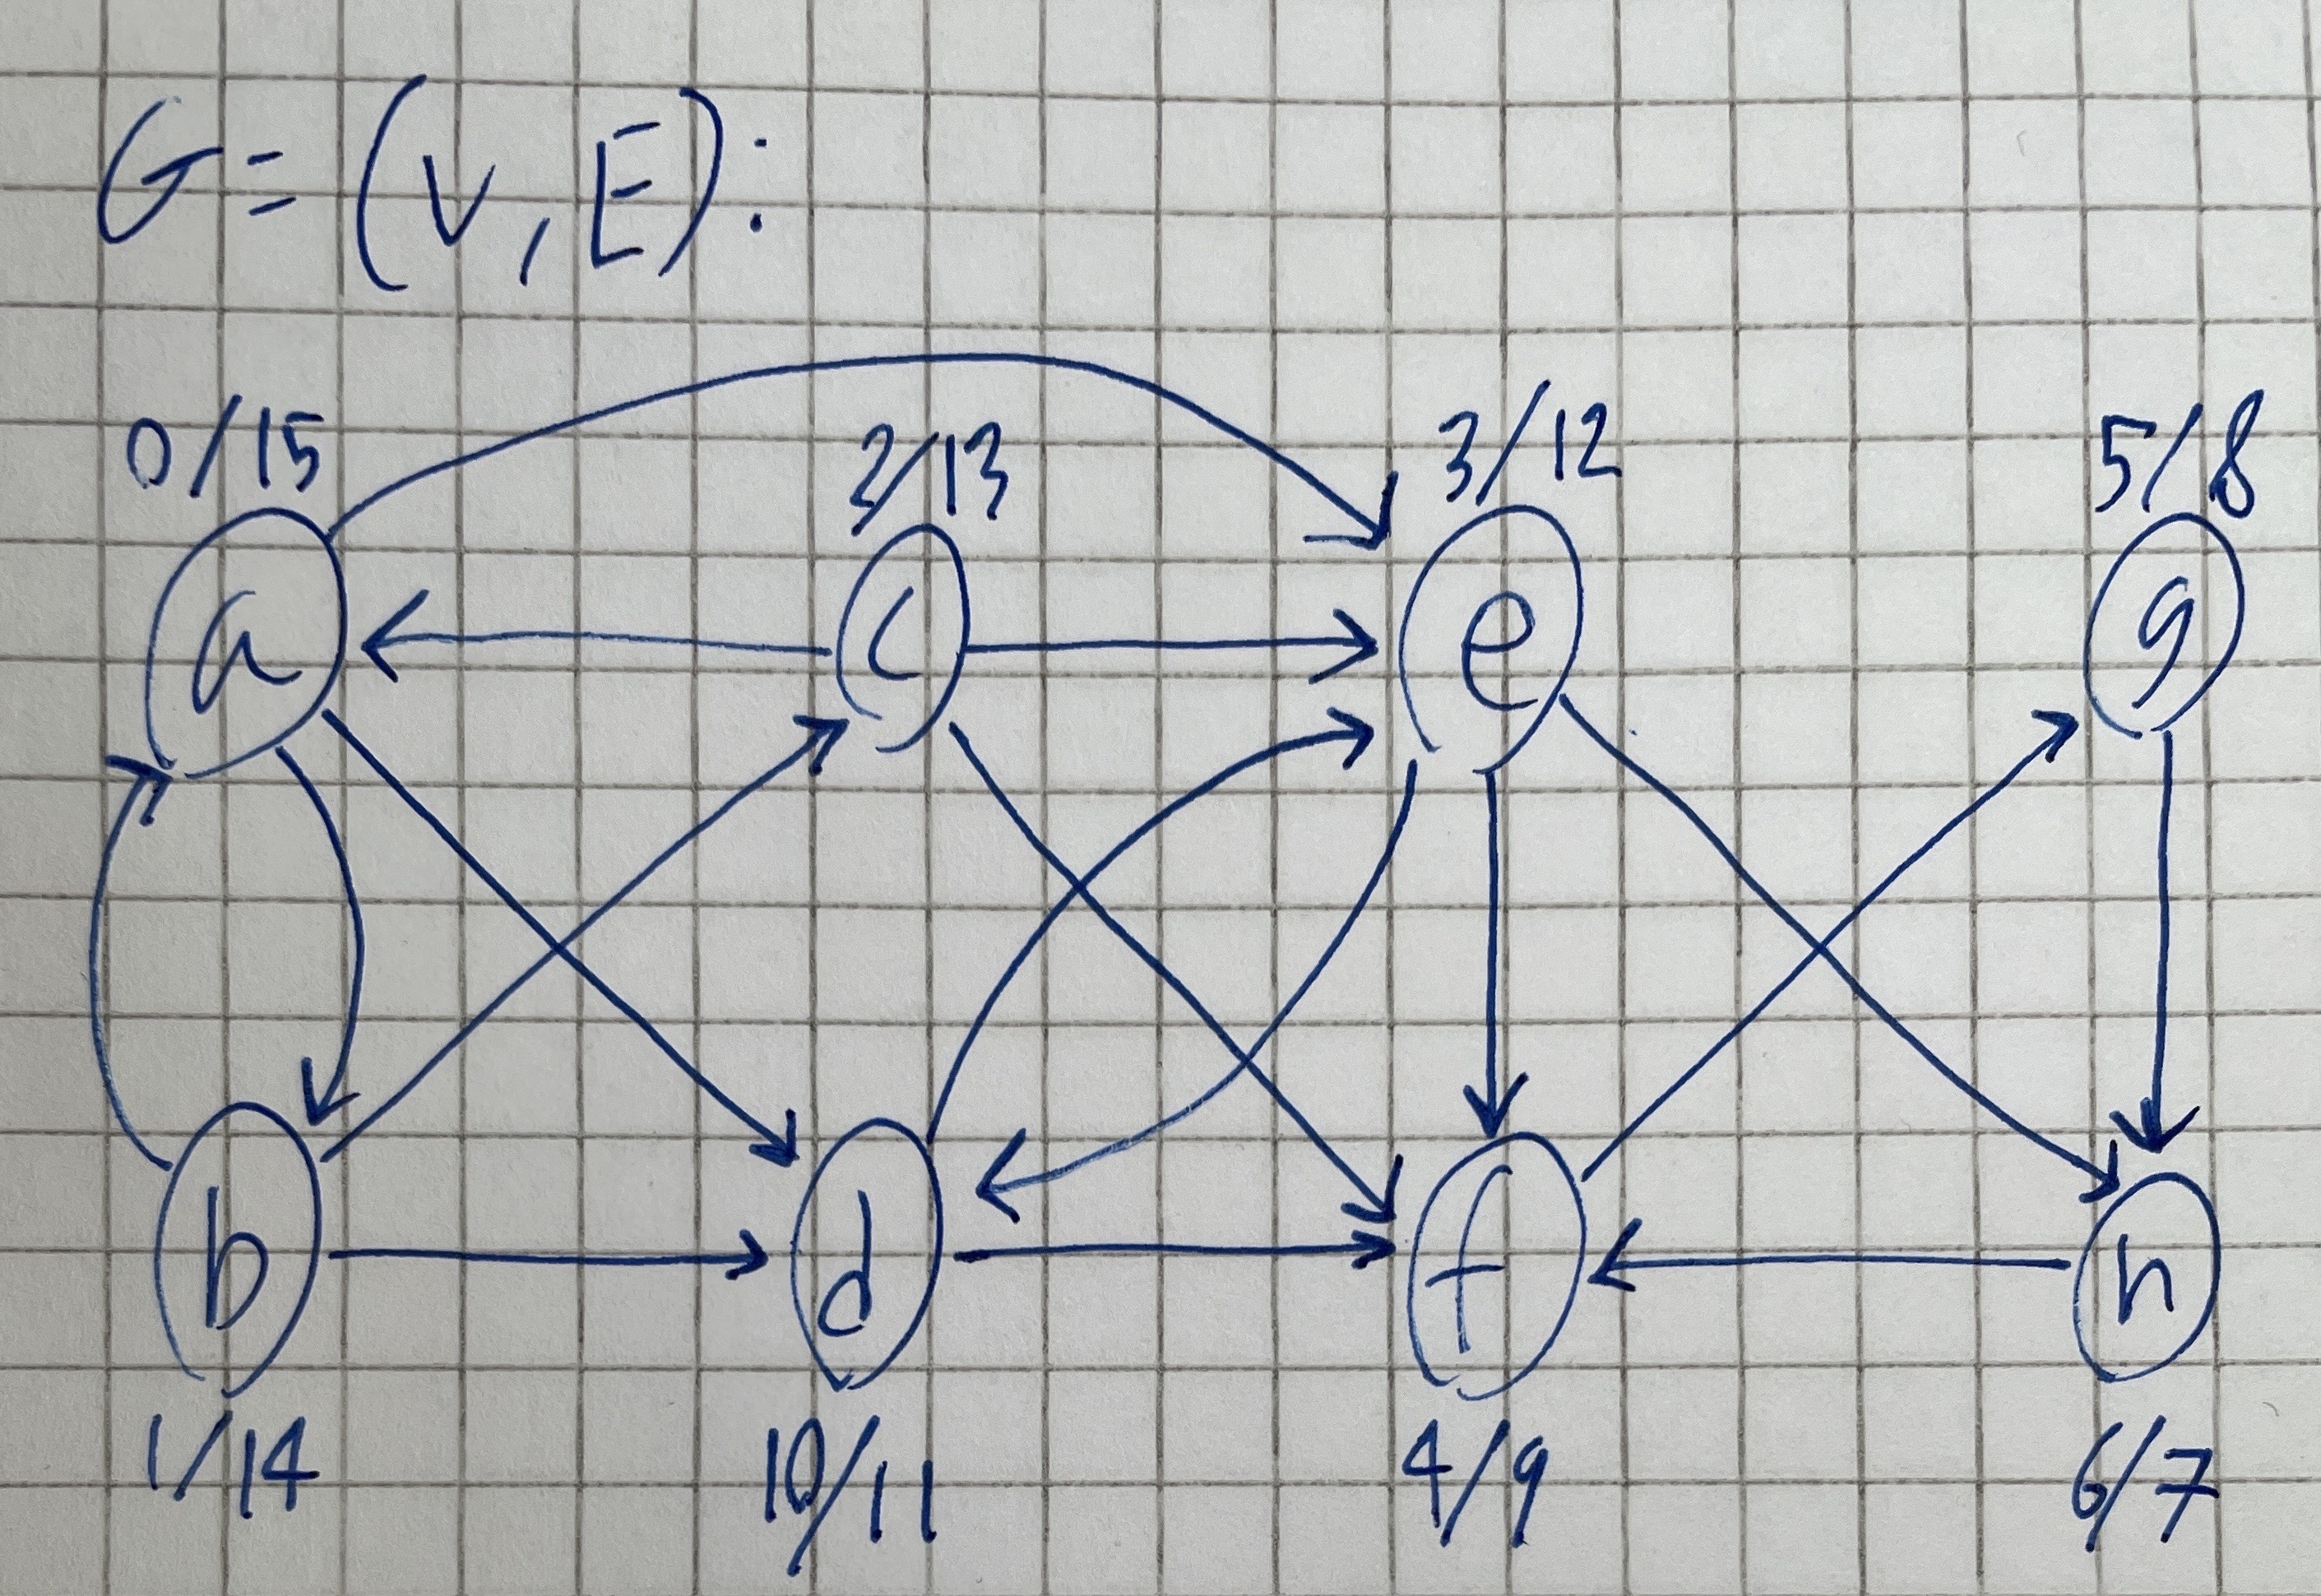 G = (V, E):
0/15 2/13 3/12 5/8
a c e g
b d f h
1/14 10/11 4/9 6/7